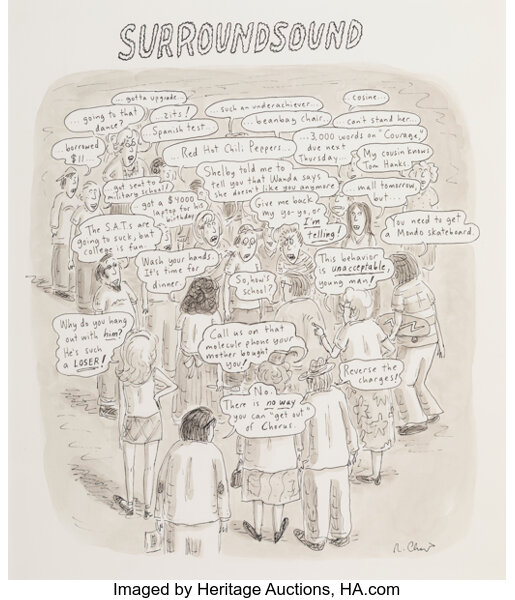 SURROUNDSOUND
...gotta upgrade...
...going to that
dance?
...zits!
Spanish test...
...such an underachiever...
...beanbag chair,
cosine...
can't stand her...
borrowed
$11...
...Red Hot Chili Peppers...
...3,000 words on "Courage,"
due next
Thursday...
My cousin knows
Tom Hanks.
got sent to
military school?
Shelby told me to
tell you that Wanda says
she doesn't like you anymore
...mall tomorrow,
but...
got a $4000
laptop for his
birthday
Give me back
my yo-yo, or
I'm
telling!
The S.A.T.s are
going to suck, but
college is fun.
You need to get
a Mondo skateboard.
Wash your hands.
It's time for
dinner.
So, how's
school?
This behavior
is unacceptable,
young man!
Why do you hang
out with him?
He's such
a LOSER!
Call us on that
molecule phone your
mother bought
you!
Reverse the
charges!
No.
There is no way
you can "get out"
of Chorus.
R. Chast
Imaged by Heritage Auctions, HA.com